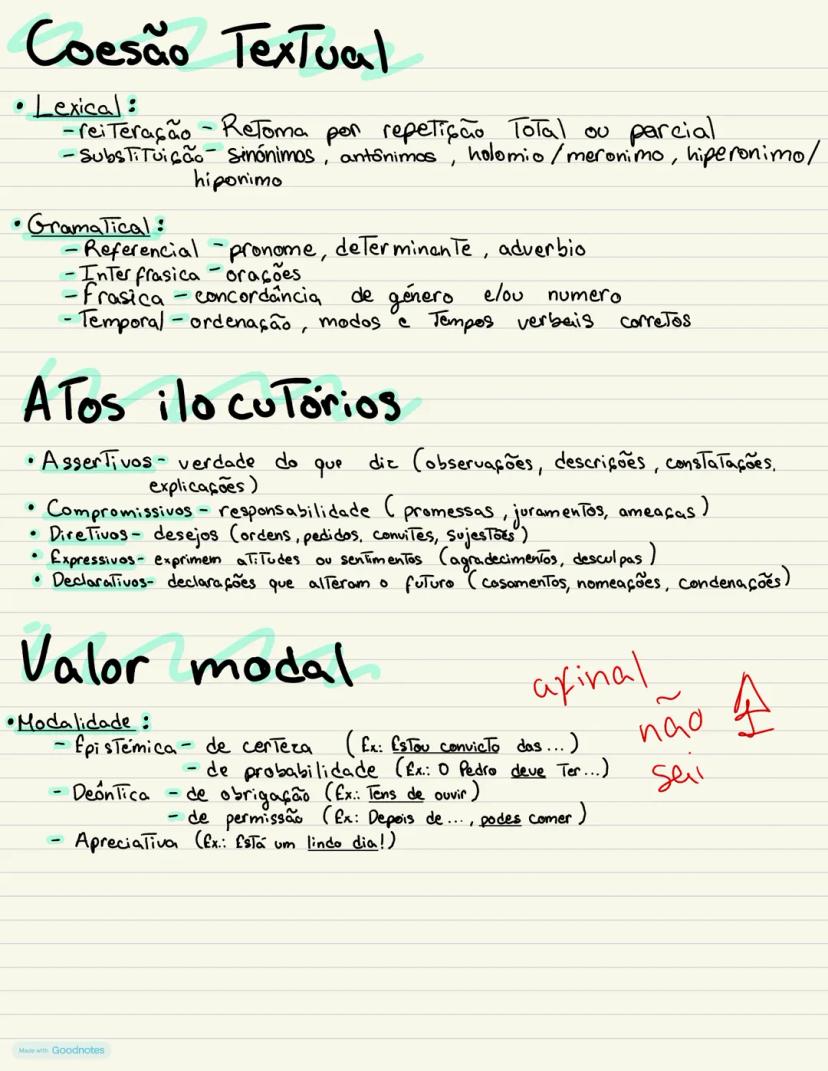 Coesão Textual
• Lexical:
- reiteração - Retoma por repetição Total ou parcial
- substituição - sinónimos, antónimos, holomio/meronimo, hiperonimo/
hiponimo
• Gramatical:
- Referencial - pronome, determinante, adverbio
- Interfrasica - orações
- frasica - concordância de género e/ou numero
- Temporal - ordenação, modos e Tempos verbais corretos
Atos ilocutórios
• Assertivos - verdade do que diz (observações, descrições, constatações,
explicações)
• Compromissivos - responsabilidade (promessas, juramentos, ameaças)
• Diretivos - desejos (ordens, pedidos, convites, sujestões)
• Expressivos - exprimem atitudes ou sentimentos (agradecimentos, desculpas)
• Declarativos - declarações que alteram o futuro (casamentos, nomeações, condenações)
Valor modal
afinal
não
sei
• Modalidade:
- Epistémica - de certeza (Ex: Estou convicto das...)
- de probabilidade (Ex.: O Pedro deve Ter...)
- Deôntica - de obrigação (Ex.: Tens de ouvir)
- de permissão (Ex: Depois de ..., podes comer)
- Apreciativa (Ex.: Está um lindo dia!)
Made with Goodnotes